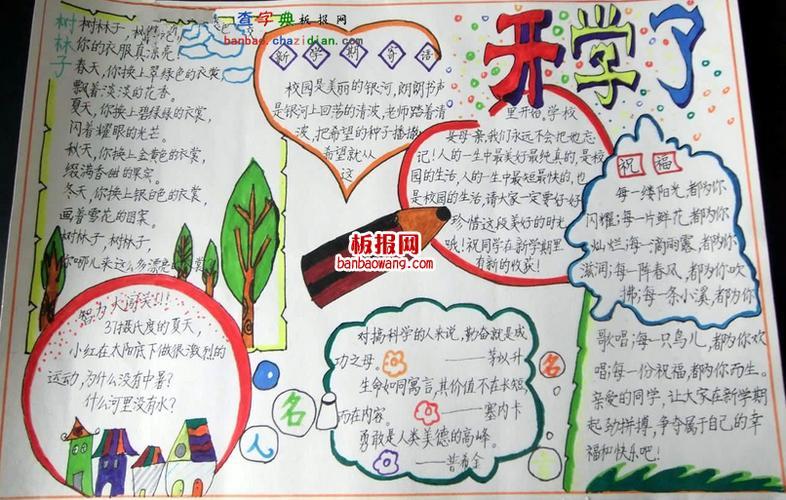 查字典板报网
banbao.chazidian.com
开学了
树林子
树林子,树林子,
你的衣服真漂亮!
春天,你换上翠绿色的衣裳
飘着淡淡的花香。
夏天,你换上碧绿绿的衣裳,
闪着耀眼的光芒。
秋天,你换上金黄色的衣裳,
缀满香甜的果实。
冬天,你换上银白色的衣裳
画着雪花的图案。
树林子,树林子,
你哪儿来这么多漂亮的衣裳?
新学期寄语
校园是美丽的银河,朗朗书声
是银河上回荡的清波,老师踏着清
波,把希望的种子播撒,
希望就从
这
里开始,学校
是母亲,我们永远不会把她忘
记!人的一生中最美好最纯真的,是校
园的生活,人的一生中最短最快的,也
是校园的生活,请大家一定要好好
珍惜这段美好的时光
哦!祝同学在新学期里
有新的收获!
祝福
每一缕阳光,都为你
闪耀;每一片鲜花,都为你
灿烂;每一滴雨露,都为你
滋润;每一阵春风,都为你吹
拂;每一条小溪,都为你
歌唱;每一只鸟儿,都为你欢
唱;每一份祝福,都为你而生。
亲爱的同学,让大家在新学期
起劲拼搏,争夺属于自己的幸
福和快乐吧!
板报网
banbaowang.com
智力大闯关!!!
37摄氏度的夏天,
小红在太阳底下做很激烈的
运动,为什么没有中暑?
什么河里没有水?
名人名言
对搞科学的人来说,勤奋就是成
功之母。——茅以升
生命如同寓言,其价值不在长短,
而在内容。——塞内卡
勇敢是人类美德的高峰。
——普希金